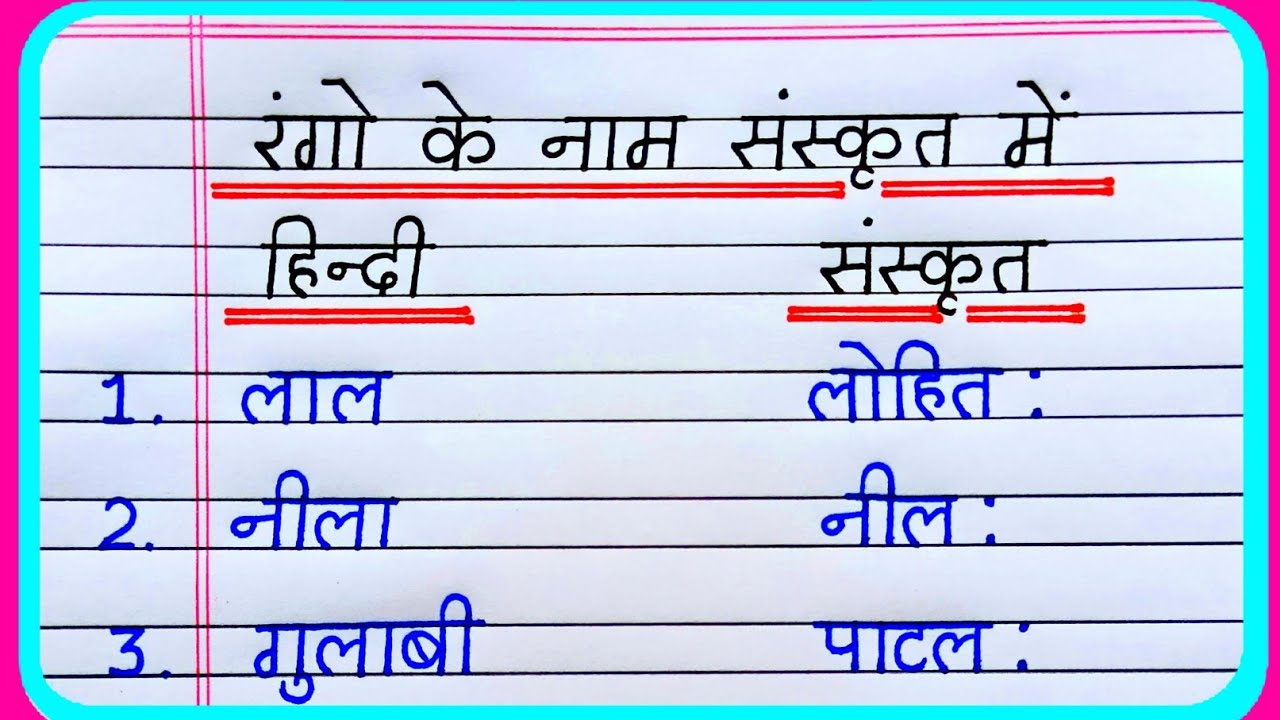 रंगो के नाम संस्कृत में
हिन्दी संस्कृत
1. लाल लोहित:
2. नीला नील:
3. गुलाबी पाटल: